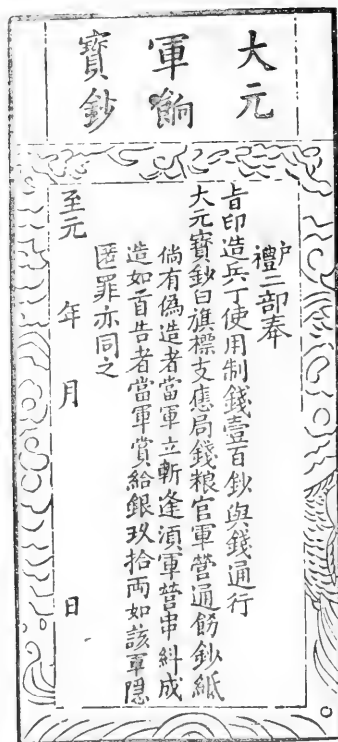 大元
軍餉
寶鈔
户禮二部奉
旨印造兵丁使用制錢壹百鈔與錢通行
大元寶鈔白旗標支應局錢粮官軍營通飭鈔紙
倘有偽造者當軍立斬逢湏軍營串糾成
造如首告者當軍賞給銀玖拾两如該軍隠
匿罪亦同之
至元 年 月 日